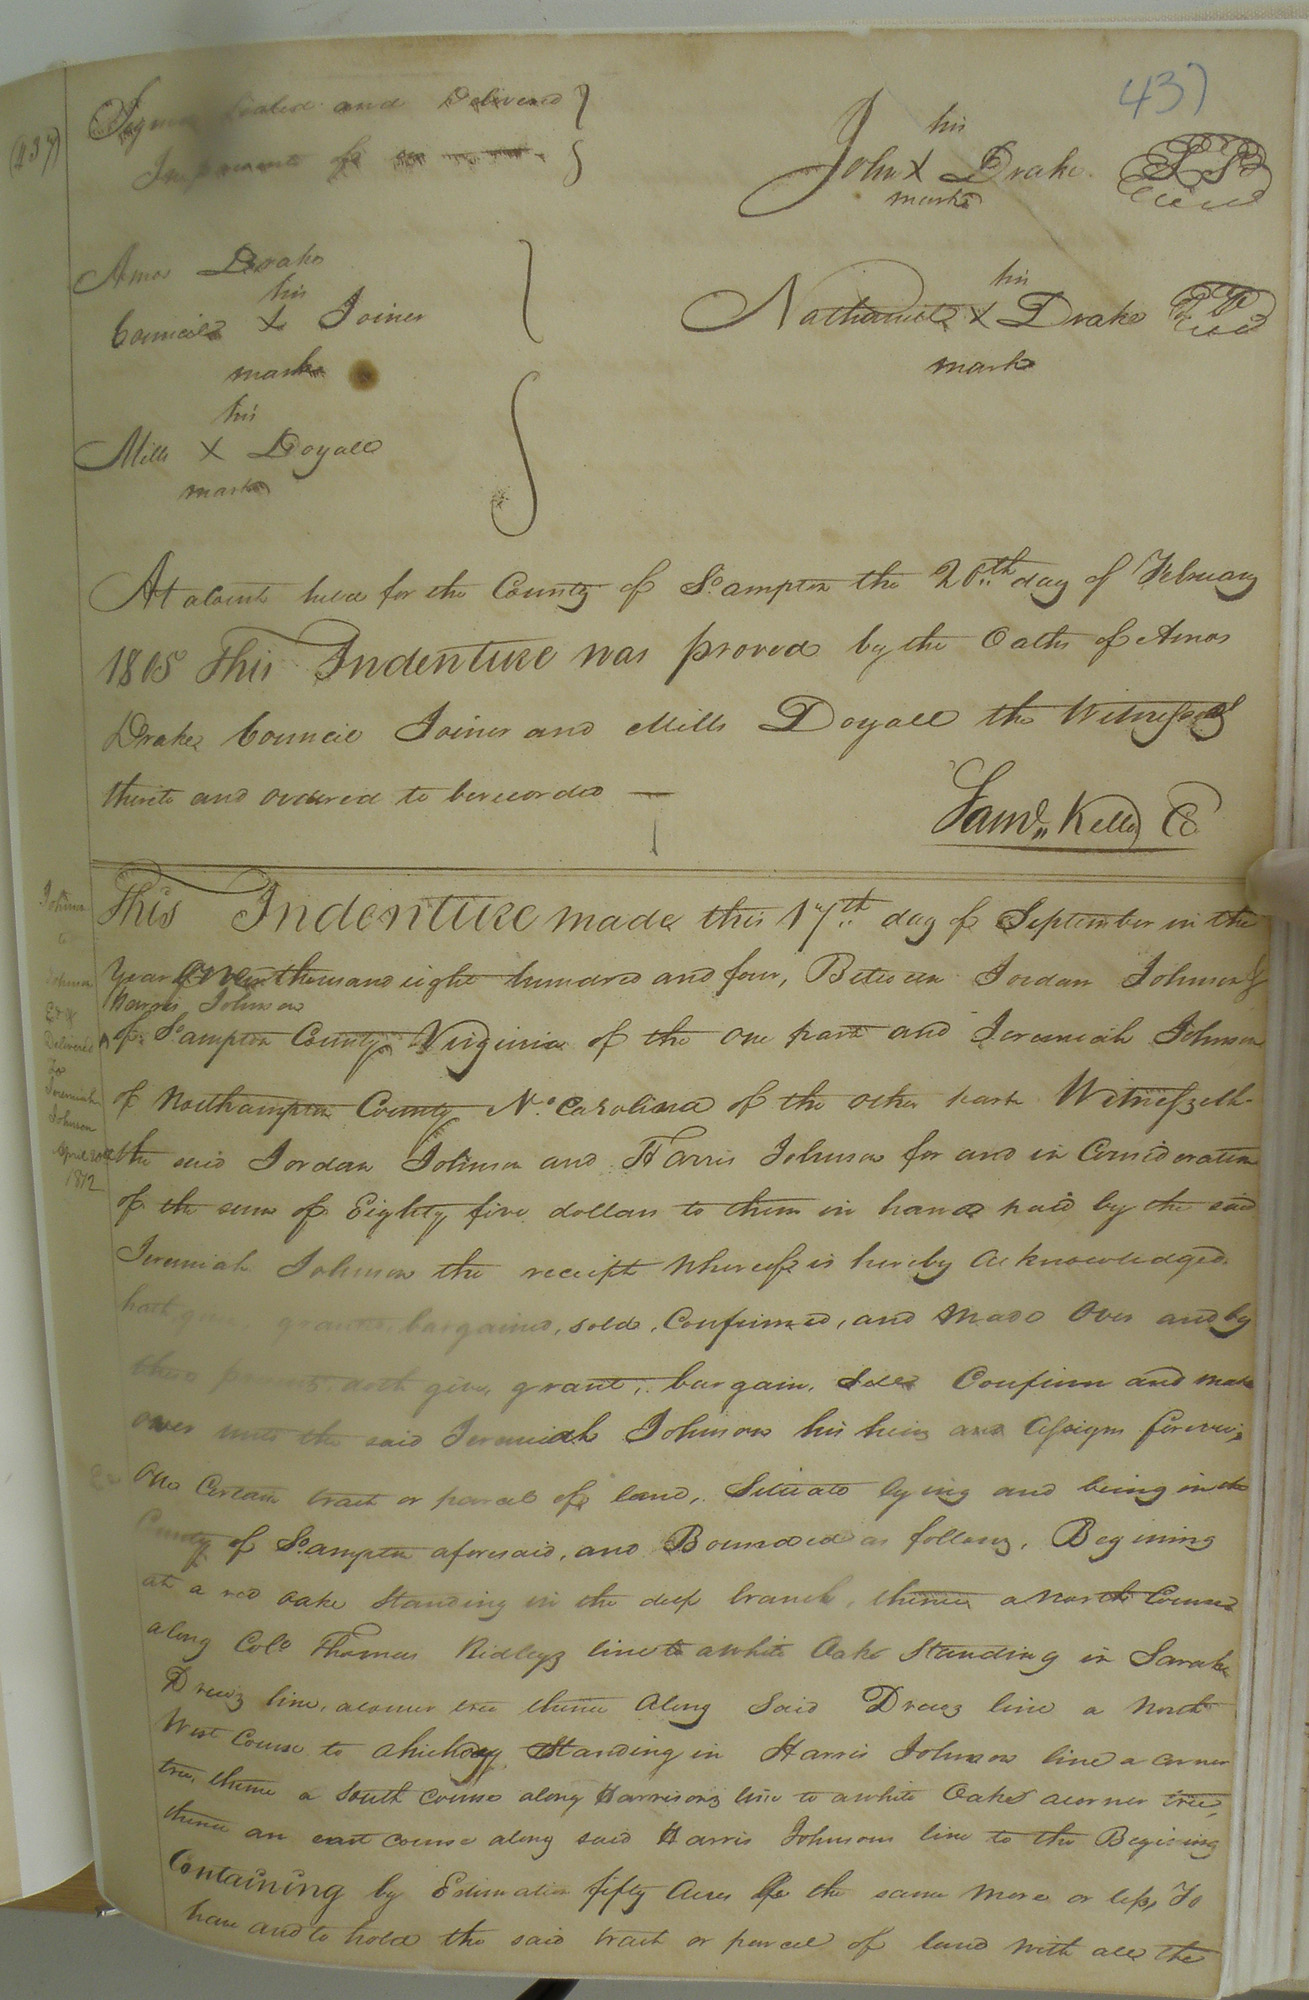 437
(437)
Signed Sealed and Delivered
In presence of
his
John X Drake L S
mark
Amos Drake
his
Council X Joiner
mark
his
Nathaniel X Drake
mark
his
Mills X Doyall
mark
At a Court held for the County of So.ampton the 20th day of February
1805 This Indenture was proved by the Oaths of Amos
Drake Council Joiner and Mills Doyall the Witnesses
thereto and ordered to be recorded —
Saml. Kello CC
This Indenture made this 17th day of September in the
Year One thousand eight hundred and four, Between Jordan Johnson &
Harris Johnson
of So.ampton County Virginia of the one part and Jeremiah Johnson
of Northampton County No. Carolina of the other part Witnesseth
the said Jordan Johnson and Harris Johnson for and in Consideration
of the sum of Eighty five dollars to them in hand paid by the said
Jeremiah Johnson the receipt whereof is hereby acknowledged
hath given granted bargained, sold, Confirmed, and made Over and by
these presents doth give, grant, bargain, Sell Confirm and make
over unto the said Jeremiah Johnson his heirs and Assigns forever,
One Certain tract or parcel of land, Situate lying and being in the
County of So.ampton aforesaid, and Bounded as follows, Begining
at a red oake Standing in the deep branch, thence a North Course
along Colo Thomas Ridleys line to a white Oake Standing in Sarah
Drews line, a corner tree thence along Said Drews line a North
West Course to a hickory Standing in Harris Johnson line a corner
tree, thence a South course along Harrisons line to a white Oake a corner tree,
thence an east course along said Harris Johnsons line to the Begining
Containing by Estimation fifty Acres be the same more or less, To
have and to hold the said tract or parcel of land with all the
Johnson
to
Johnson
Ex d
Delivered
To
Jeremiah
Johnson
April 20th
1812